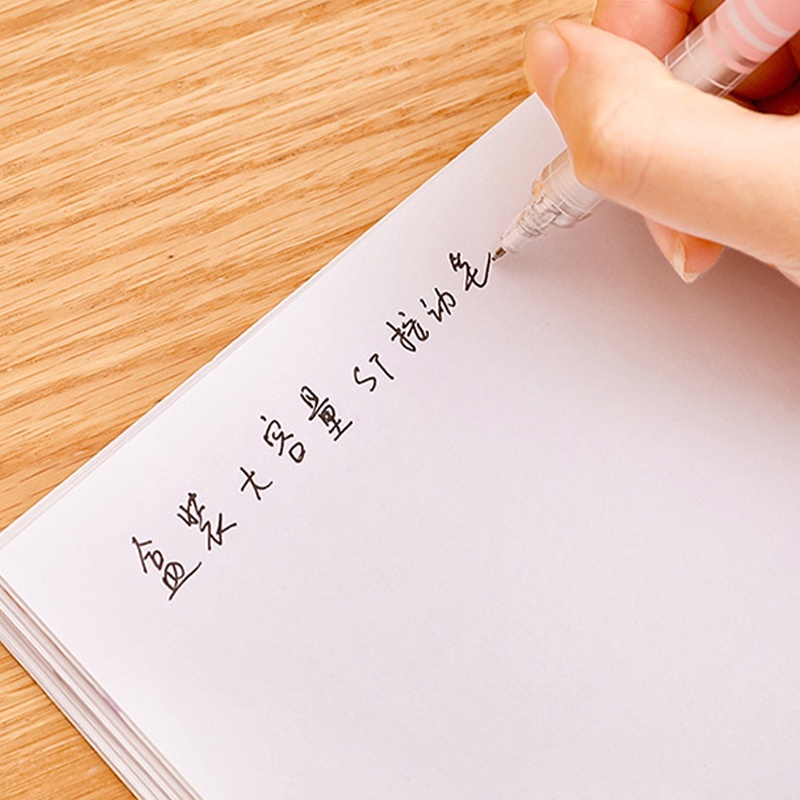 盒装大容量ST按动笔